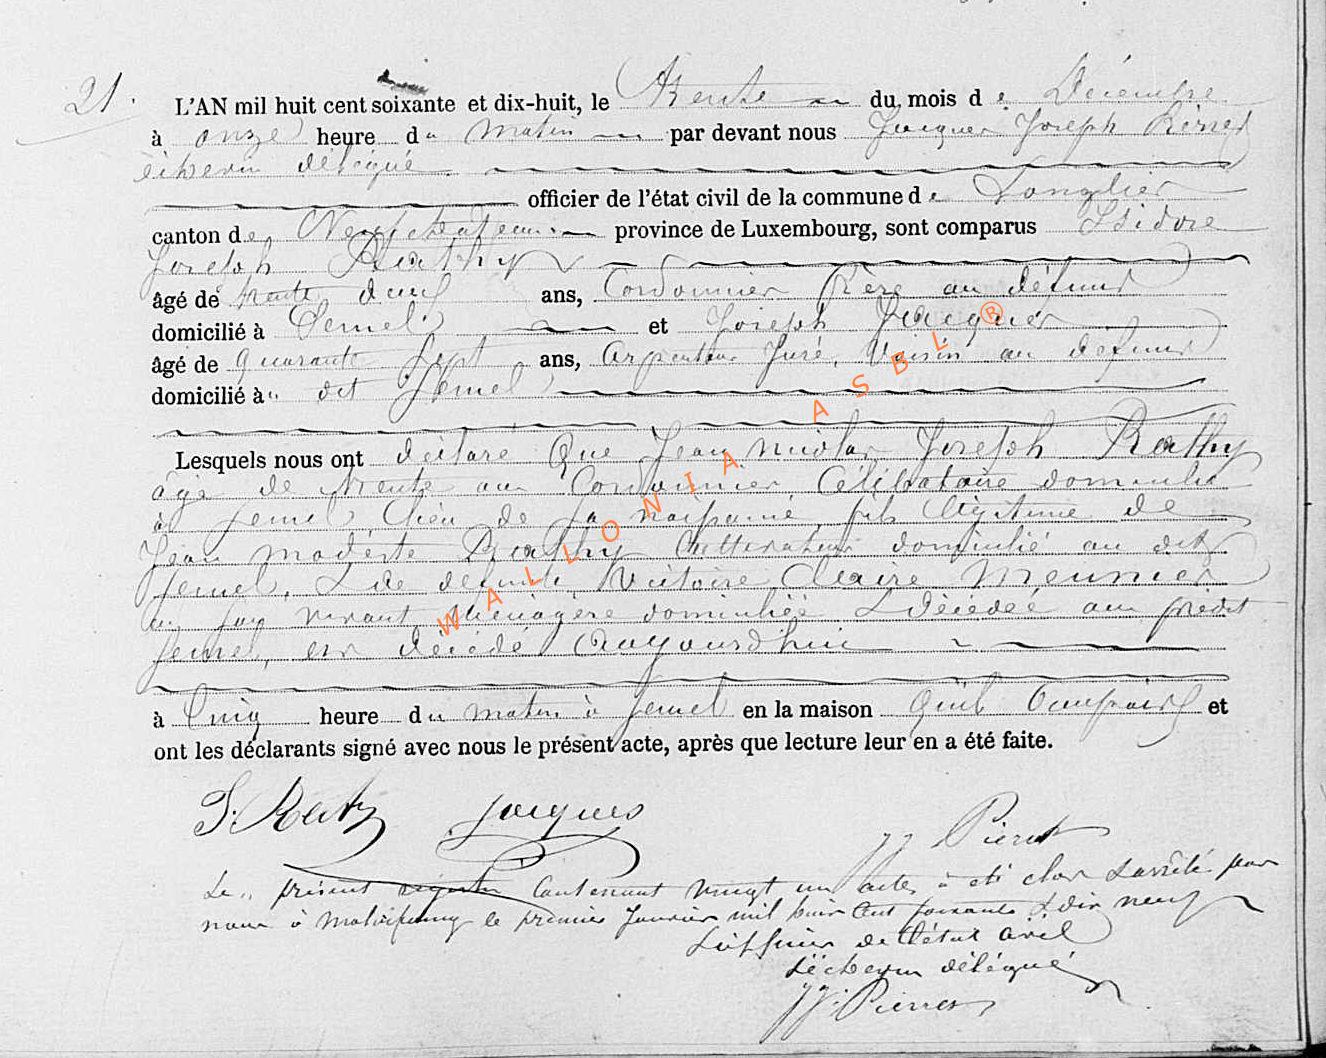 21.
L'AN mil huit cent soixante et dix-huit, le Trente du mois de Décembre
à onze heure du matin par devant nous Jacques Joseph Pierret
échevin délégué
officier de l'état civil de la commune de Longlier
canton de Neufchateau province de Luxembourg, sont comparus Isidore
Joseph Rathy
âgé de trente deux ans, Cordonnier frère au défunt
domicilié à Semel et Joseph Jacques
âgé de quarante sept ans, arpenteur Juré, Voisin au defunt
domicilié au dit Semel
Lesquels nous ont déclaré Que Jean nicolas Joseph Rathy
âgé de trente ans Cordonnier, Célibataire domicilié
à Semel, lieu de sa naissance, fils légitime de
Jean modeste Rathy Cultivateur domicilié au dit
Semel, & de defunte Victoire Claire Meunier
en son vivant Ménagère domiciliée & décédée au prédit
Semel, est décédé Aujourd'hui
à Cinq heure du matin à Semel en la maison qu'il occupait et
ont les déclarants signé avec nous le présent acte, après que lecture leur en a été faite.
I. Rathy Jacques
JJ Pierret
Le présent registre Contenant vingt un actes à été clos & arrêté par
nous à le premier Janvier mil huit Cent soixante & dix neuf
L'officier de l'état civil
L'échevin délégué
JJ. Pierret
WALLONIA ASBL ®